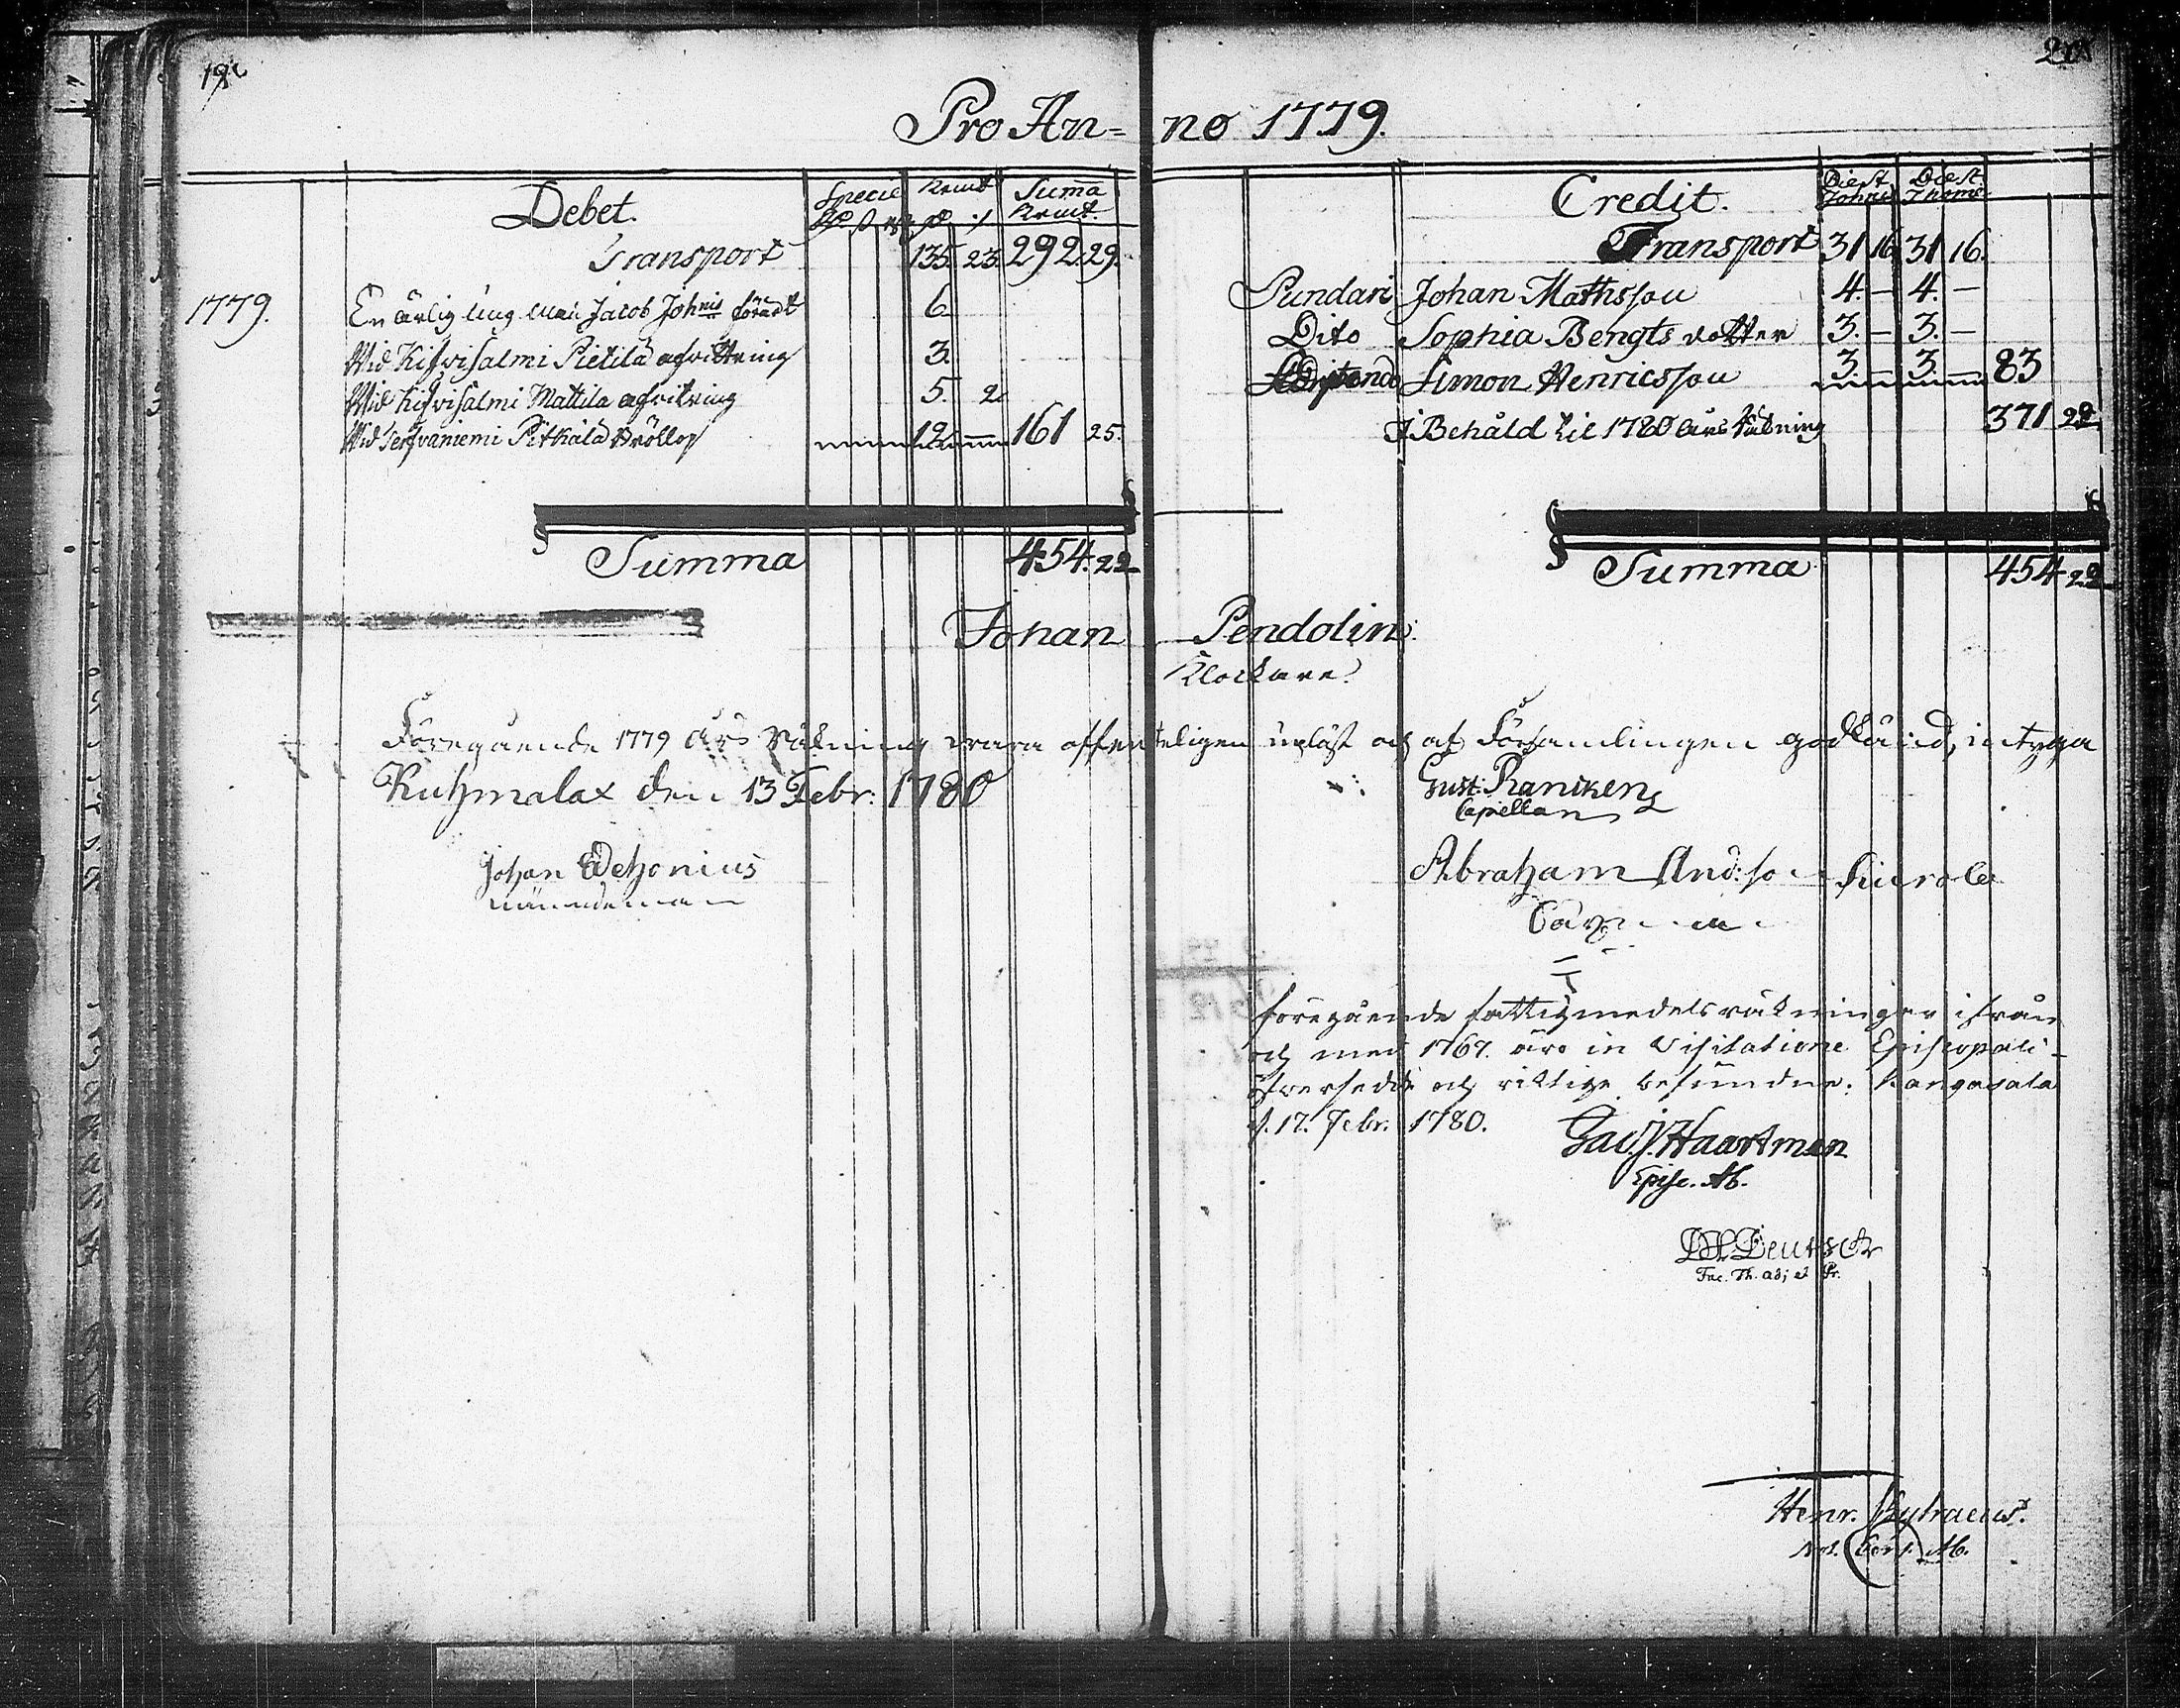 Pro An=no 1779.
Debet.
Specie
Summa
Transport 135. 23. 292. 29.
1779. En ärlig ung man Jacob Johnis förärdt 6
Wid Kifvisalmi Pietilä afvittring 3.
Wid Kifvisalmi Mattila afvitring 5. 2
Wid Servaniemi Pitkälä Bröllop 12. 161 25.
Summa 454. 22
Credit.
Die St. Johnis
Die St. Thomæ
Transport 31 16 31 16.
Pundari Johan Mathsson 4. — 4. —
Dito Sophia Bengts dotter 3. — 3. —
Simon Henricsson 3. — 3. — 83
I Behåld til 1780 års Räkning 371 22
Summa 454 22
Johan Pendolin
Klockare.
Föregående 1779 års Räkning vara offenteligen upläst och af Församlingen godkänd, intyga
Kuhmalax den 13 Febr: 1780
Gust: Rancken
Capellan
Johan Wehonius
nämndeman
Abraham And:son
föregående fattigmedelsräkningar ifrån
och med 1767. äro in Visitatione Episcopali
öfversedde och riktige befundne. Kangasala
d. 17. Febr. 1780.
Gab. J. Haartman
Episc. Ab.
Deutsch
Fac. Th. adj et Pr.
Henr.
Not. Cons. Ab.